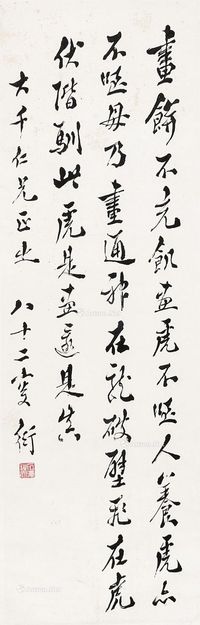 畫餅不充飢畫虎不咥人公養虎亦
不咥毋乃畫通神在龍破壁飛在虎
伏階馴此虎是畫還是真
大千仁兄正之 八十二叟衍